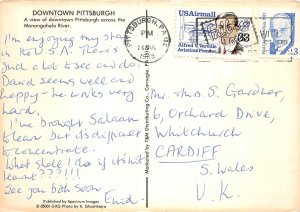 DOWNTOWN PITTSBURGH
A view of downtown Pittsburgh across the
Monongahela River.
I'm enjoying my stay
in the U.S.A. There's
such a lot to see and do.
David seems well and
happy - he works very
hard.
I've brought Salaan
to learn but it's difficult
to concentrate.
What shall I do if it isn't
learnt???!!!
See you both soon
Enid.
Published by Spectrum Images
Photography by K. Ghoshhajra
Marketed by T&M Distributing Co., Carnegie,
PITTSBURGH, PA
PM
USAirmail
Alfred V. Verville
Aviation Pioneer
33
Mr & Mrs S. Gardner,
6, Orchard Drive,
Whitchurch
CARDIFF
S. Wales
U.K.